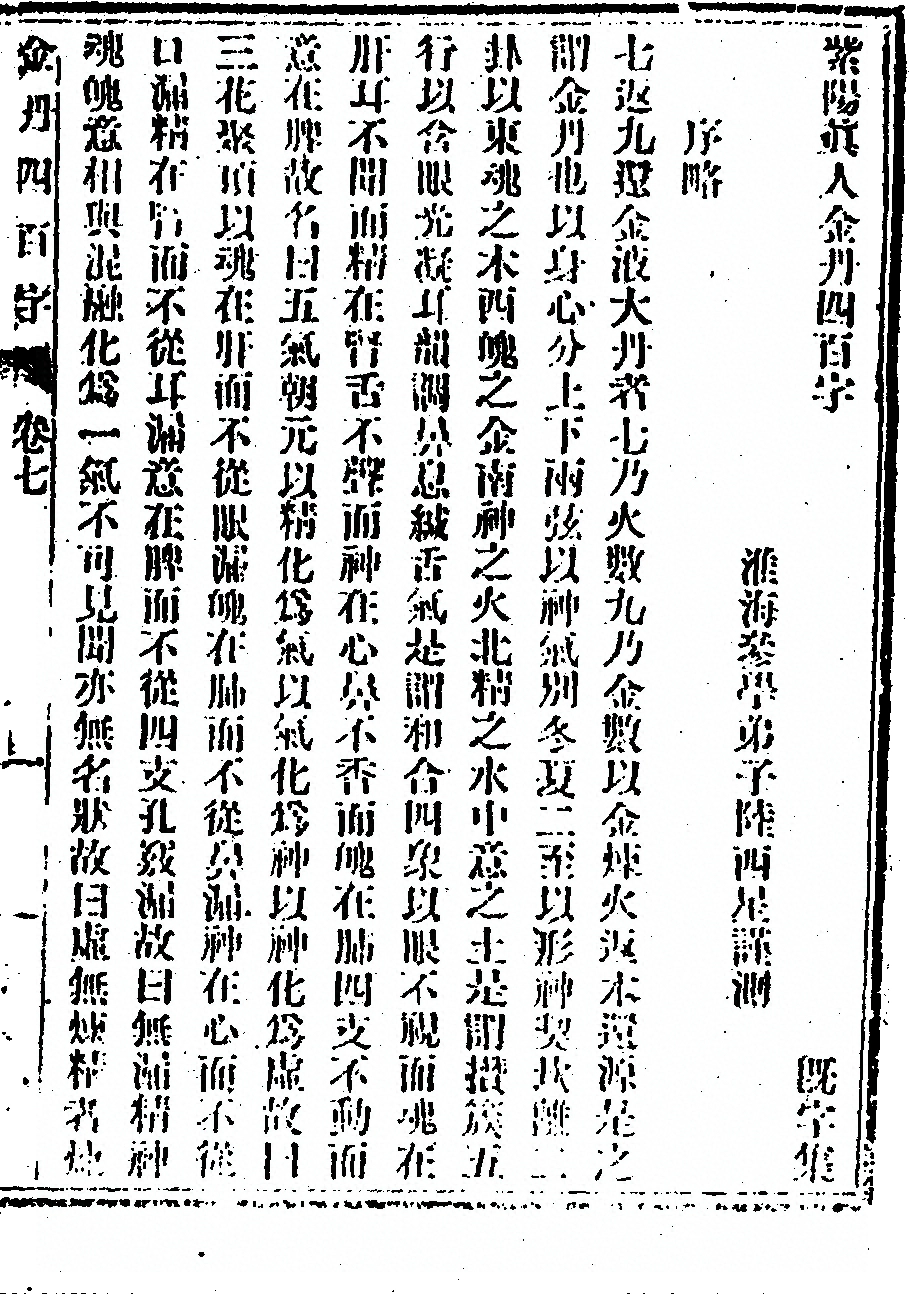 紫陽眞人金丹四百字
旣字集
淮海叅學弟子陸西星謹測
序略
七返九還金液大丹者七乃火數九乃金數以金煉火返本還源是之
謂金丹也以身心分上下兩弦以神氣別冬夏二至以形神契坎離二
卦以東魂之木西魄之金南神之火北精之水中意之土是謂攢簇五
行以含眼光凝耳韻調鼻息緘舌氣是謂和合四象以眼不視而魂在
肝耳不聞而精在腎舌不聲而神在心鼻不香而魄在肺四支不動而
意在脾故名曰五氣朝元以精化爲氣以氣化爲神以神化爲虛故曰
三花聚頂以魂在肝而不從眼漏魄在肺而不從鼻漏神在心而不從
口漏精在腎而不從耳漏意在脾而不從四支孔竅漏故曰無漏精神
魂魄意相與混融化爲一氣不可見聞亦無名狀故曰虛無煉精者煉
金丹四百字
卷七
一